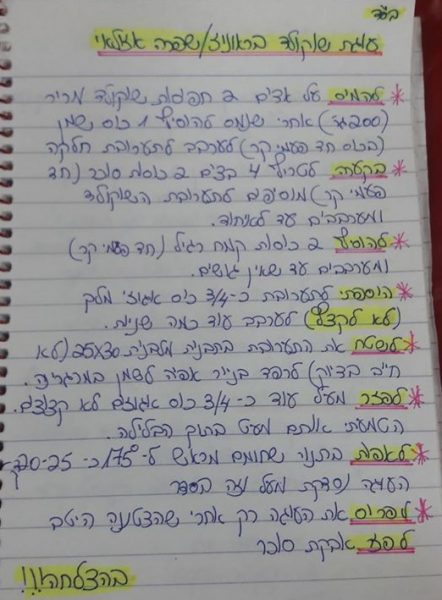 בס"ד
עוגת שוקולד בראוניז/שפרה אזולאי
* להמיס על אדים 2 חפיסות שוקולד מריר
(200 גר') אחרי שנמס להוסיף 1 כוס שמן
(בכוס חד פעמי קר) לערבב לתערובת חלקה
* בקערה לטרוף 4 בצים 2 כוסות סוכר (חד
פעמי קר) מוסיפים לתערובת השוקולד
ומערבבים עד לאיחוד.
* להוסיף 2 כוסות קמח רגיל (חד פעמי קר)
ומערבבים עד שאין גושים.
* הוספתי לתערובת כ-3/4 כוס אגוזי מלך
(לא לקצץ) לערבב עוד כמה שניות.
* לשטח את התערובת בתבנית מלבנית 25X30 (לא
חייב בדיוק) לרפד בנייר אפיה לשמן במרגרינה.
* לפזר מעל עוד כ-3/4 כוס אגוזים לא קצוצים.
הטמעתי אותם מעט בתוך הבלילה.
* לאפות בתנור שחומם מראש ל-175° כ-20-25 דק'
העוגה נסדקת מעל וזה בסדר
* לפרוס את העוגה רק אחרי שהצטננה היטב
לפזר אבקת סוכר
בהצלחה!!!